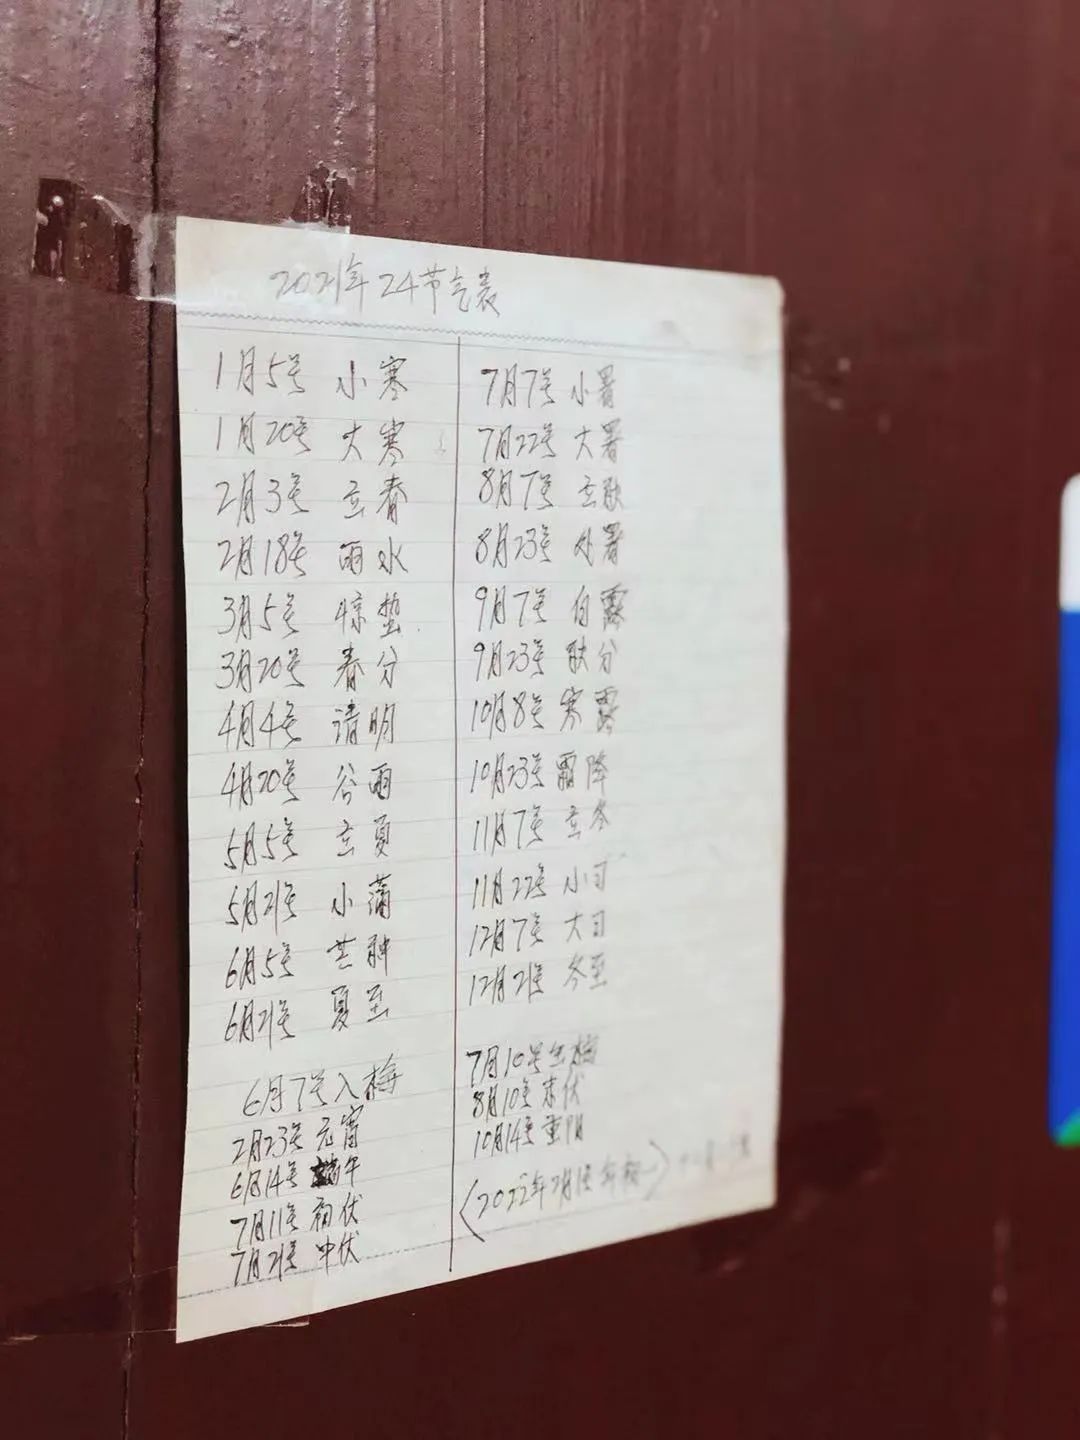 2021年24节气表
1月5号 小寒
1月20号 大寒
2月3号 立春
2月18号 雨水
3月5号 惊蛰
3月20号 春分
4月4号 请明
4月20号 谷雨
5月5号 立夏
5月21号 小满
6月5号 芒种
6月21号 夏至
6月7号入梅
2月23号 元宵
6月14号 端午
7月11号 初伏
7月21号 中伏
7月7号 小署
7月22号 大署
8月7号 立秋
8月23号 处署
9月7号 白露
9月23号 秋分
10月8号 寒露
10月23号 霜降
11月7号 立冬
11月22号 小彐
12月7号 大彐
12月21号 冬至
7月10号出梅
8月10号末伏
10月14号重阳
(2022年2月1号年初一)